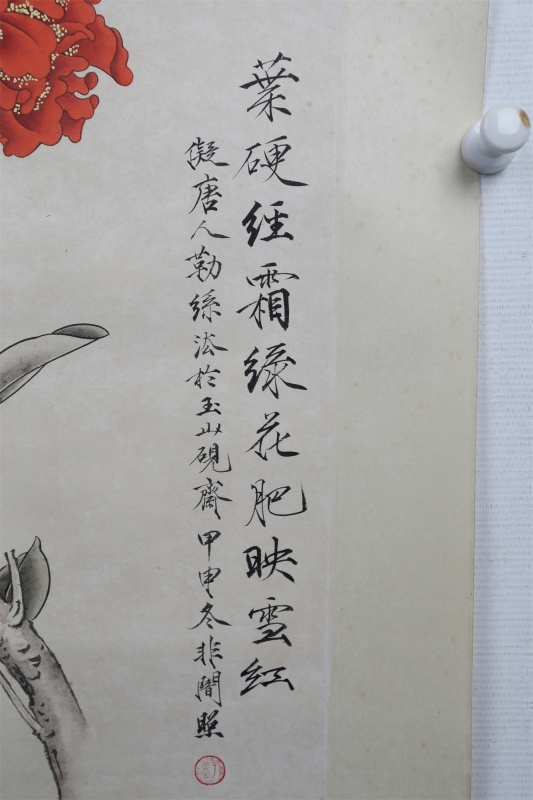 葉硬經霜緑花肥映雪紅
儗唐人勒絲法於玉山硯齋甲申冬非闇照